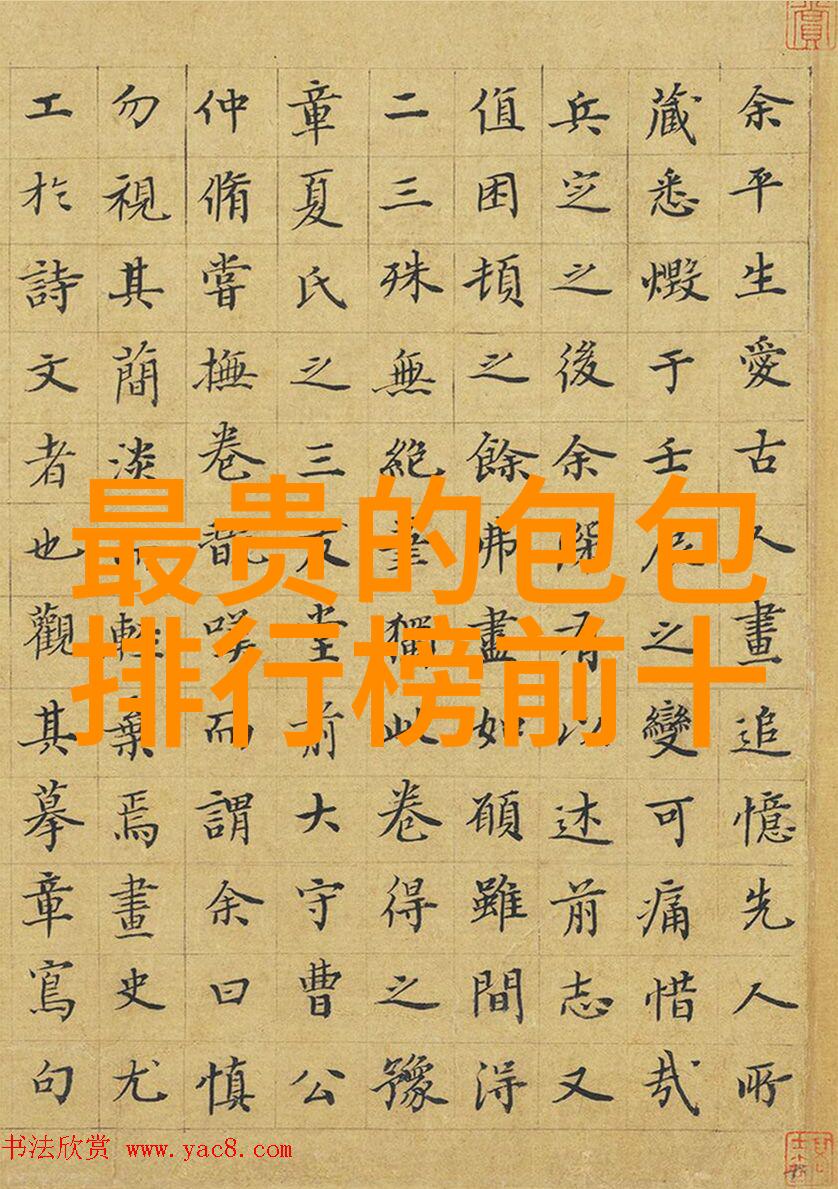 余平生愛古人畫追憶先人所
藏悉燬于壬之變可痛惜哉
兵定之後余有以述前志又
值困頓之餘弗盡如願雖間得
二三殊無絕筆獨此卷得之豫
章夏氏之三友堂前大守曹公
仲脩嘗撫卷笑而謂余曰慎
勿視其簡淡而輕棄焉畫史尤
工於詩文者也觀其摹章寫句
最贵的包包
排行榜前十
书法欣赏 www.yac8.com